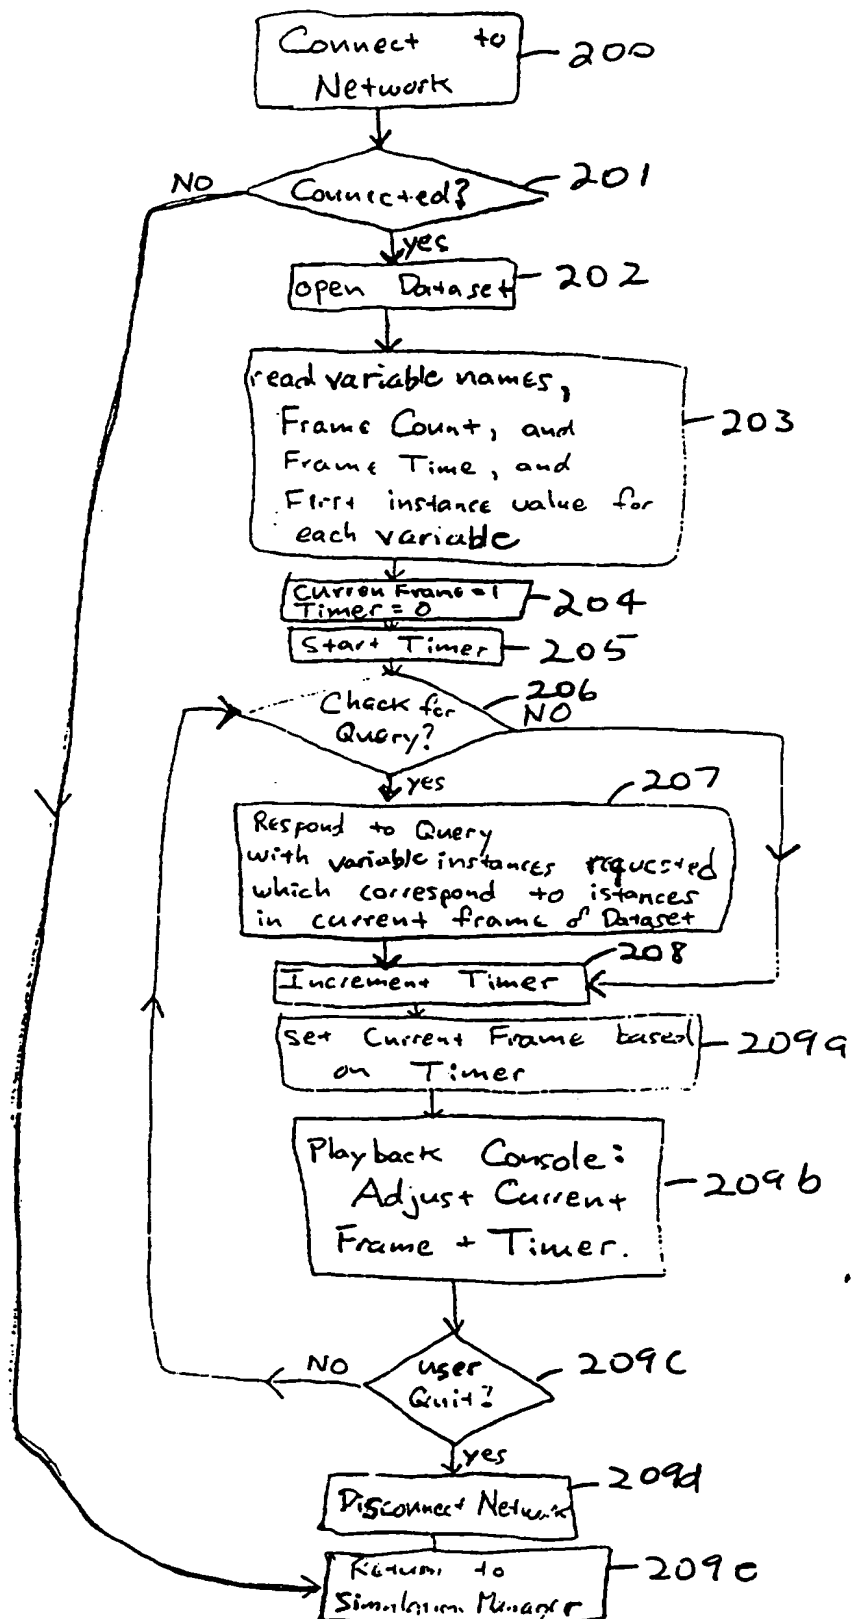 Connect to
Network
200
NO
Connected?
201
yes
open Dataset
202
read variable names,
Frame Count, and
Frame Time, and
First instance value for
each variable
203
Curren Frame = 1
Timer = 0
204
Start Timer
205
Check for
Query?
206
NO
yes
207
Respond to Query
with variable instances requested
which correspond to istances
in current frame of Dataset
208
Increment Timer
set Current Frame based
on Timer
209a
Playback Console:
Adjust Current
Frame + Timer.
209b
NO
user
Quit?
209c
yes
Disconnect Network
209d
Return to
Simulation Manager
209e